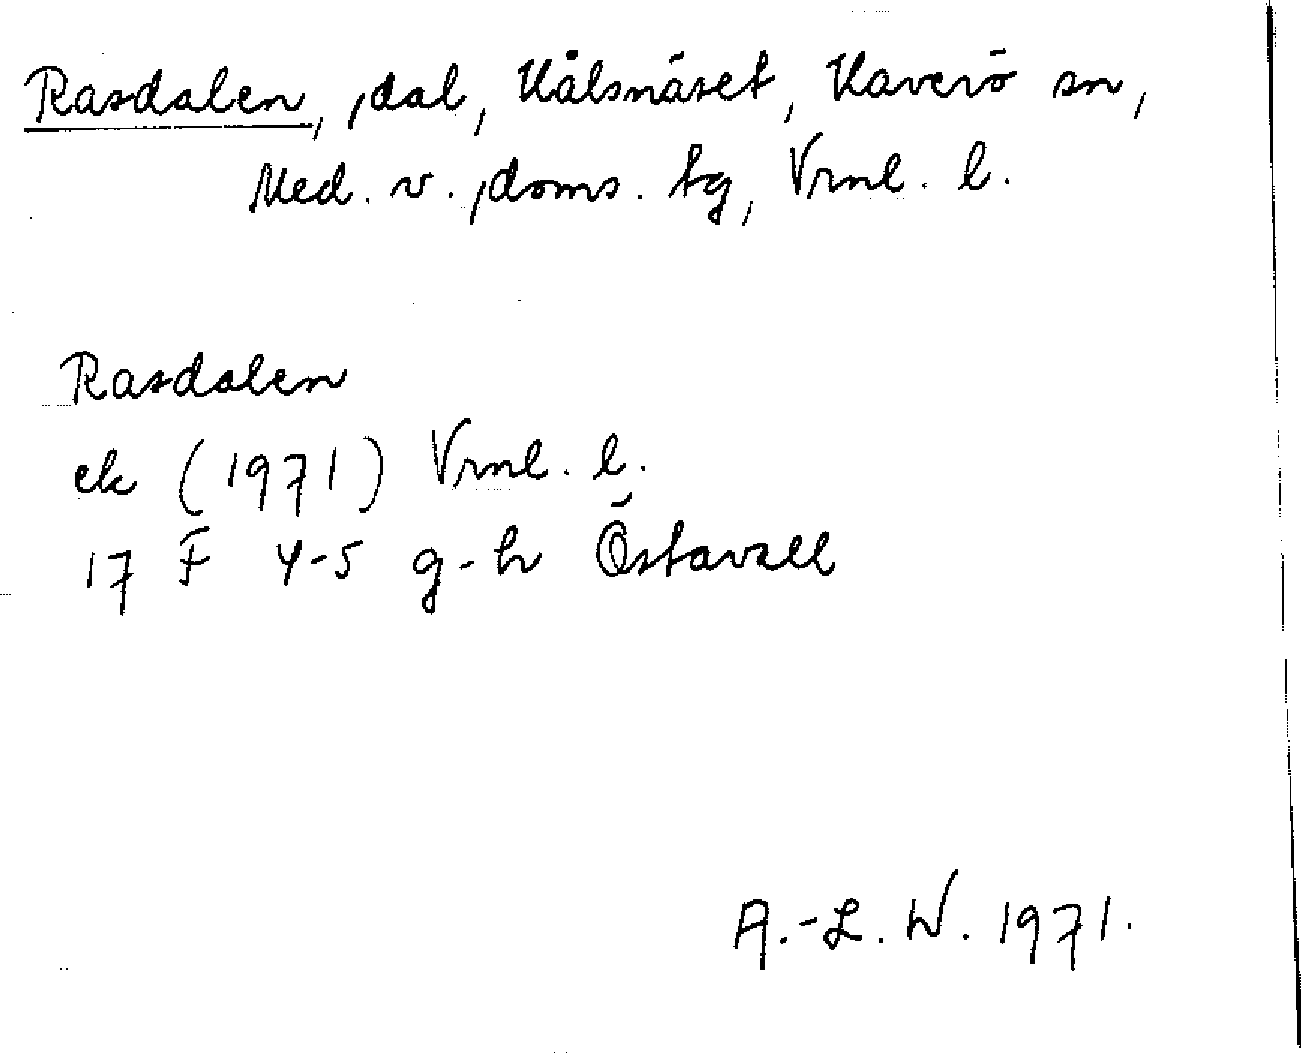 Rasdalen, dal, Kålsnäset, Haverö sn,
Med. v. doms. tg, Vrnl. l.
Rasdalen
ek (1971) Vrnl. l.
17 F 4-5 g-h Östavall
A.-L. W. 1971.